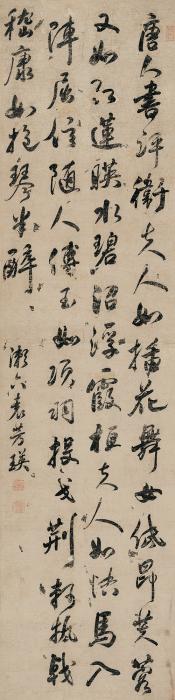 唐人書評衛夫人如插花舞女低昂芙蓉
又如紅蓮暎水碧沼浮霞桓夫人如快馬入
陣屈信隨人傅玉如項羽拔戈荊軻執戟
嵇康如抱琴半醉
漱六袁芳瑛